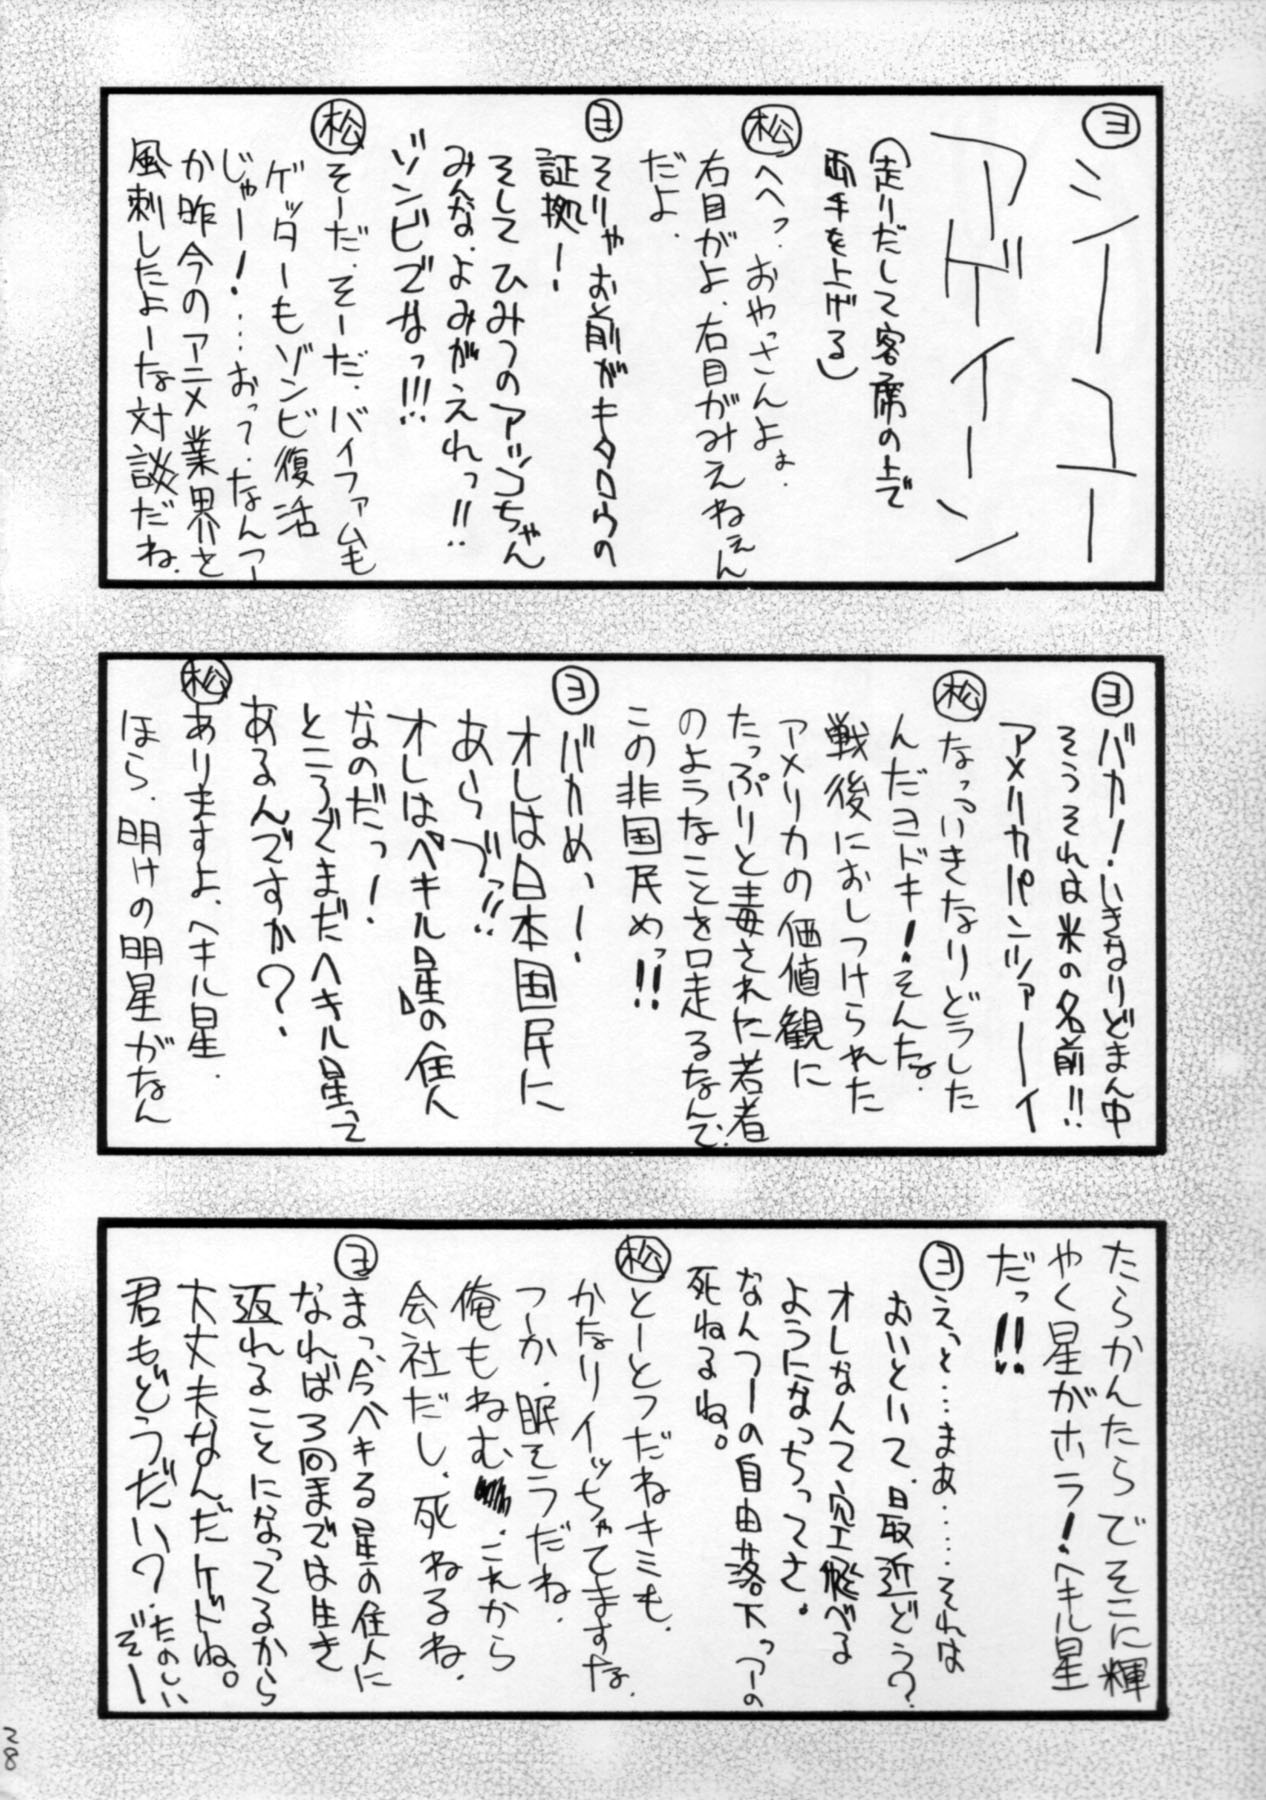 ヨ シーユー
アゲイーン
(走りだして客席の上で
両手を上げる)
松 へへっ.おやっさんよぉ.
右目がよ、右目がみえねぇん
だよ.
ヨ そりゃお前がキタロウの
証拠ー!
そして ひみつのアッコちゃん
みんな.よみがえれっ!!
ゾンビでなっ!!!
松 そーだ.そーだ.バイファムも
ゲッターもゾンビ復活
じゃー!…おって.なんつー
か昨今のアニメ業界を
風刺したよーな対談だね.
ヨ バカ!いきなりどまん中
そうそれは米の名前!!
アメリカパンツァーイ
松 なっ、いきなりどうした
んだヨドキ!そんな.
戦後におしつけられた
アメリカの価値観に
たっぷりと毒された若者
のようなことを口走るなんて.
この非国民めっ!!
ヨ バカめっ!
オレは日本国民に
あらづっ!!
オレは『ペキル星』の住人
なのだっ!
ところでまだヘキル星って
あるんですか?.
松 ありますよ、ヘキル星.
ほら.明けの明星がなん
たらかんたらでそこに輝
やく星がホラ!ヘキル星
だっ!!
ヨ えっと…まあ……それは
おいといて、最近どう?
オレなんて空飛べる
ようになっちってさ。
なんつーの自由落下っつーの
死ねるね。
松 とーとつだねキミも.
かなりイッちゃてますな.
つーか.眠そうだね.
俺もねむ.これから
会社だし、死ねるね.
ヨ まっ、今ペキる星の住人に
なれば3回までは生き
返れることになってるから
大丈夫なんだケドね。
君もどうだい?.たのしい
ぞー
28